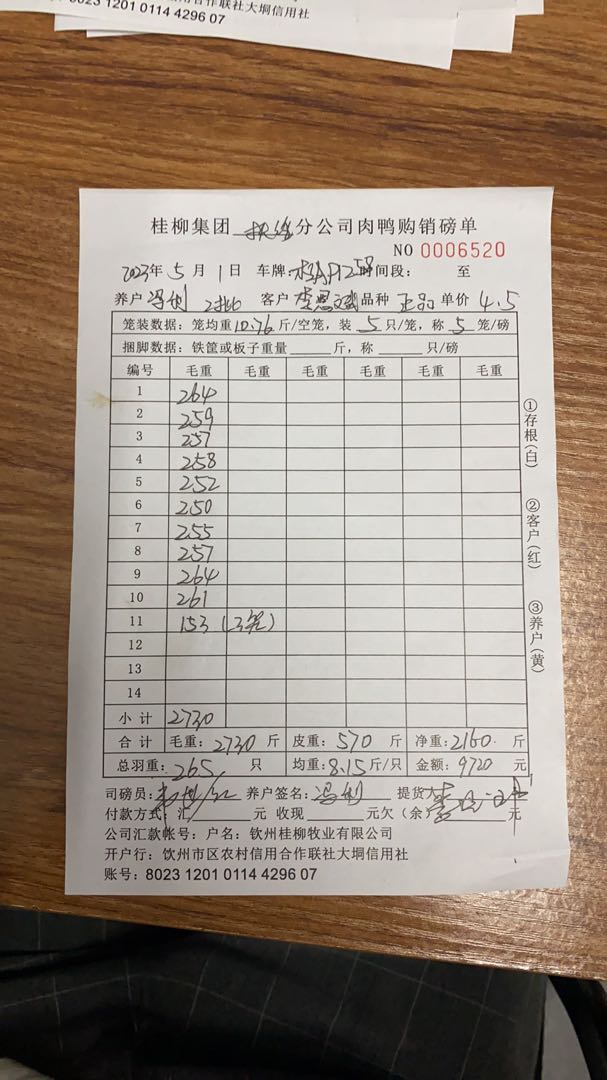 8023 1201 0114 4296 07
合作联社大垌信用社
4296 07
桂柳集团 分公司肉鸭购销磅单
NO 0006520
2023年 5 月 1 日 车牌: 时间段: 至
养户 冯利 2批 客户 李恩斌 品种 单价 4.5
笼装数据: 笼均重 10.76 斤/空笼, 装 5 只/笼, 称 5 笼/磅
捆脚数据: 铁筐或板子重量 斤, 称 只/磅
编号 毛重 毛重 毛重 毛重 毛重 毛重
1 264
2 259
3 257
4 258
5 252
6 250
7 255
8 257
9 264
10 261
11 153 (3笼)
12
13
14
小 计 2730
合 计 毛重: 2730 斤 皮重: 570 斤 净重: 2160. 斤
总羽重: 265 只 均重: 8.15 斤/只 金额: 9720 元
司磅员: 养户签名: 冯利 提货人:
付款方式: 汇 元 收现 元欠(余) 元
公司汇款帐号: 户名: 钦州桂柳牧业有限公司
开户行: 钦州市区农村信用合作联社大垌信用社
账号: 8023 1201 0114 4296 07
①存根(白)
②客户(红)
③养户(黄)